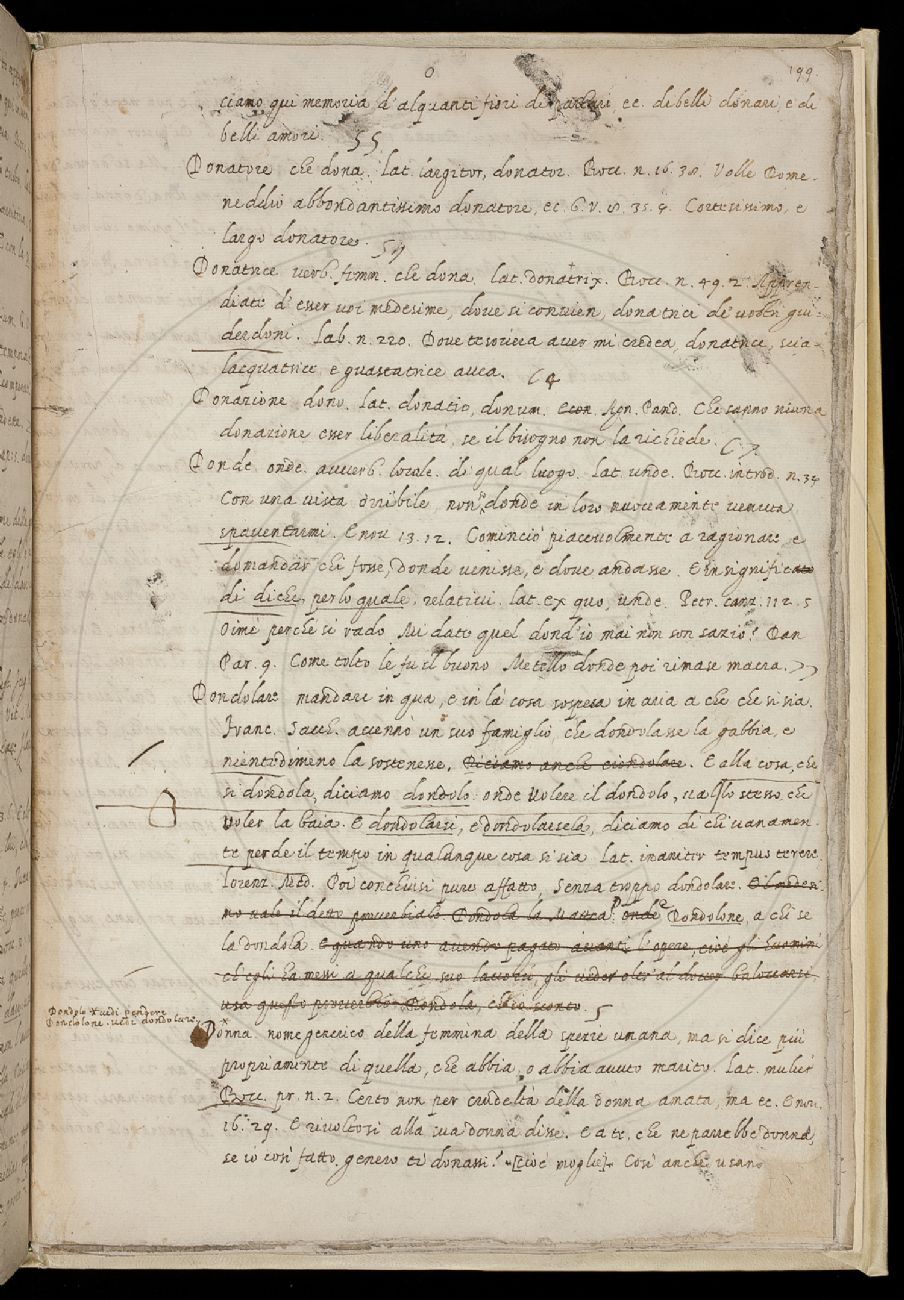 O
199
ciamo qui memoria d'alquanti fiori di parlare ec. de belli donari, e di
belli amori. 55
Donatore che dona. Lat. largitor, donator. Bocc. n. 16. 38. Volle Dome-
nedio abbondantissimo donatore, ec. G. V. 8. 35. 9. Cortesissimo, e
largo donatore.
Donatrice verb. femm. che dona. lat. donatrix. Bocc. n. 49. 2. Appren-
diate d'esser voi medesime, dove si convien, donatrici de' vostri gui-
derdoni. Lab. n. 220. Dove tesoriera aver mi credea, donatrice, scia-
lacquatrice, e guastatrice avea. 64
Donazione dono. Lat. donatio, donum. Agn. Pand. Che sanno niuna
donazione esser liberalità, se il bisogno non la richiede.
Donde. onde. avverb. locale. di qual luogo. Lat. unde. Bocc. introd. n. 34
Con una vista orribile, non so donde in loro nuovamente venuta
spaventarmi. E nov. 13. 12. Cominciò piacevolmente a ragionare, e
domandar chi fosse, donde venisse, e dove andasse. E in significato
di di che, per lo quale, relativi. lat. ex quo, unde. Petr. canz. 112. 5
Oimè perchè sì rado Mi date quel dond'io mai non son sazio? Dan
Par. 9. Come tolto le fu il buono Metello donde poi rimase macra.
Dondolare mandare in qua, e in là cosa sospesa in aria a che che si sia.
Franc. Sacch. accennò un suo famiglio, che dondolasse la gabbia, e
nientedimeno la sostenesse. Diciamo anche ciondolare. E alla cosa, che
si dondola, diciamo dondolo: onde volere il dondolo, val lo stesso che
voler la baia. E dondolarsi, e dondolarsela, diciamo di chi vanamen-
te perde il tempo in qualunque cosa si sia. Lat. inaniter tempus terere.
Lorenz. Med. Poi conchiusi pure affatto, Senza troppo dondolare. E il medesi-
mo vale il detto proverbiale. Dondola la Mattea: onde Dondolone, a chi se
la dondola. E quando uno avendo pagato avanti l'opere, cioè gli huomini
ch'egli ha messi a qualche suo lavorio, gli vede baloccarsi,
usa questo proverbio Dondola, ch'io sconto. 5
Dondolo * vedi pendere
Dondolone. vedi dondolare.
Donna. nome generico della femmina della spezie umana, ma si dice più
propriamente di quella, che abbia, o abbia avuto marito. Lat. mulier
Bocc. pr. n. 2. Certo non per crudeltà della donna amata, ma ec. E nov.
16. 29. E rivoltosi alla sua donna disse. E a te, che ne parrebbe donna,
se io così fatto genero ti donassi? [cioè moglie]. Così anche usano